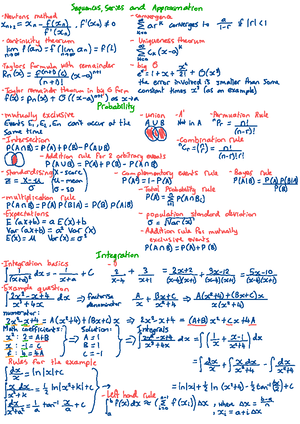 Sequences, Series and Approximation
-Newtons method
x_{n+1} = x_n - f(x_n)/f'(x_n), f'(x) ≠ 0
-convergence
Σ ar^k converges to a/(1-r) if |r|<1
-continuity theorem
lim f(an) = f(lim an) = f(L)
n→∞ n→∞
-Uniqueness theorem
Σ Cn(x-a)^n
-Taylors formula with remainder
Rn(x) = f^(n+1)(c)/(n+1)! (x-a)^{n+1}
-big O
e^x = 1 + x + x²/2! + O(x³)
the error involved is smaller than some
constant times x³ (as an example)
-Taylor remainder theorem in big O form
f(x) = Pn(x) + O((x-a)^{n+1}) as x→a
Probability
-mutually exclusive
Events E₁, E₂, En can't occur at the
same time
-union
A∪B
-A'
Not in A
-Permutation Rule
nPr = n!/(n-r)!
-Intersection
P(A∩B) = P(A)+P(B)-P(A∪B)
-combination rule
nCr = (n r) = n!/(n-r)!r!
-Addition rule for 2 arbitrary events
P(A∪B) = P(A)+P(B)-P(A∩B)
-Standardising
Z = (x-μ)/σ
x-score
μ-mean
σ-SD
-Complementary events rule
P(A') = 1-P(A)
-Bayes rule
P(A|B) = P(A)P(B|A)/P(B)
-Total Probability rule
P(A) = Σ P(A∩Bi)
-multiplication rule
P(A∩B) = P(A)P(B|A) = P(B)P(A|B)
-Expectations
E(ax+b) = aE(x)+b
Var(ax+b) = a²Var(x)
E(x) = μ Var(x) = σ²
-population standard deviation
σ = √Var(x)
-Addition rule for mutually
exclusive events
P(A∪B) = P(A)+P(B)
Integration
-Integration basics
∫ 1/(x+a)² dx = -1/(x+a) + C
-Example question
∫ (2x²-x+4)/(x³+4x) dx ⇒ factorise denominator
A/x + (Bx+C)/(x²+4) ⇒ (A(x²+4)+(Bx+C)x)/(x(x²+4))
numerator:
2x²-x+4 = A(x²+4)+(Bx+C)x ⇒ 2x²-x+4 = (A+B)x²+Cx+4A
Match coefficients:
x²: 2=A+B
x: -1=C
4=4A
Solutions:
A=1
B=1
C=-1
Integrals
∫ (2x²-x+4)/(x³+4x) dx = ∫(1/x + (x-1)/(x²+4)) dx
= ∫ dx/x + ∫ x dx/(x²+4) - ∫ dx/(x²+4)
= ln|x| + ½ ln(x²+4) - ½ tan⁻¹(x/2) + C
-Rules for the example
∫ dx/x = ln|x|+C
∫ x dx/(x²+k) = ½ ln|x²+k|+C
∫ dx/(x²+a²) = 1/a tan⁻¹ x/a + C
-left hand rule
∫ f(x)dx ≈ (Σ f(xi))Δx when Δx = (b-a)/n
xi = a+iΔx